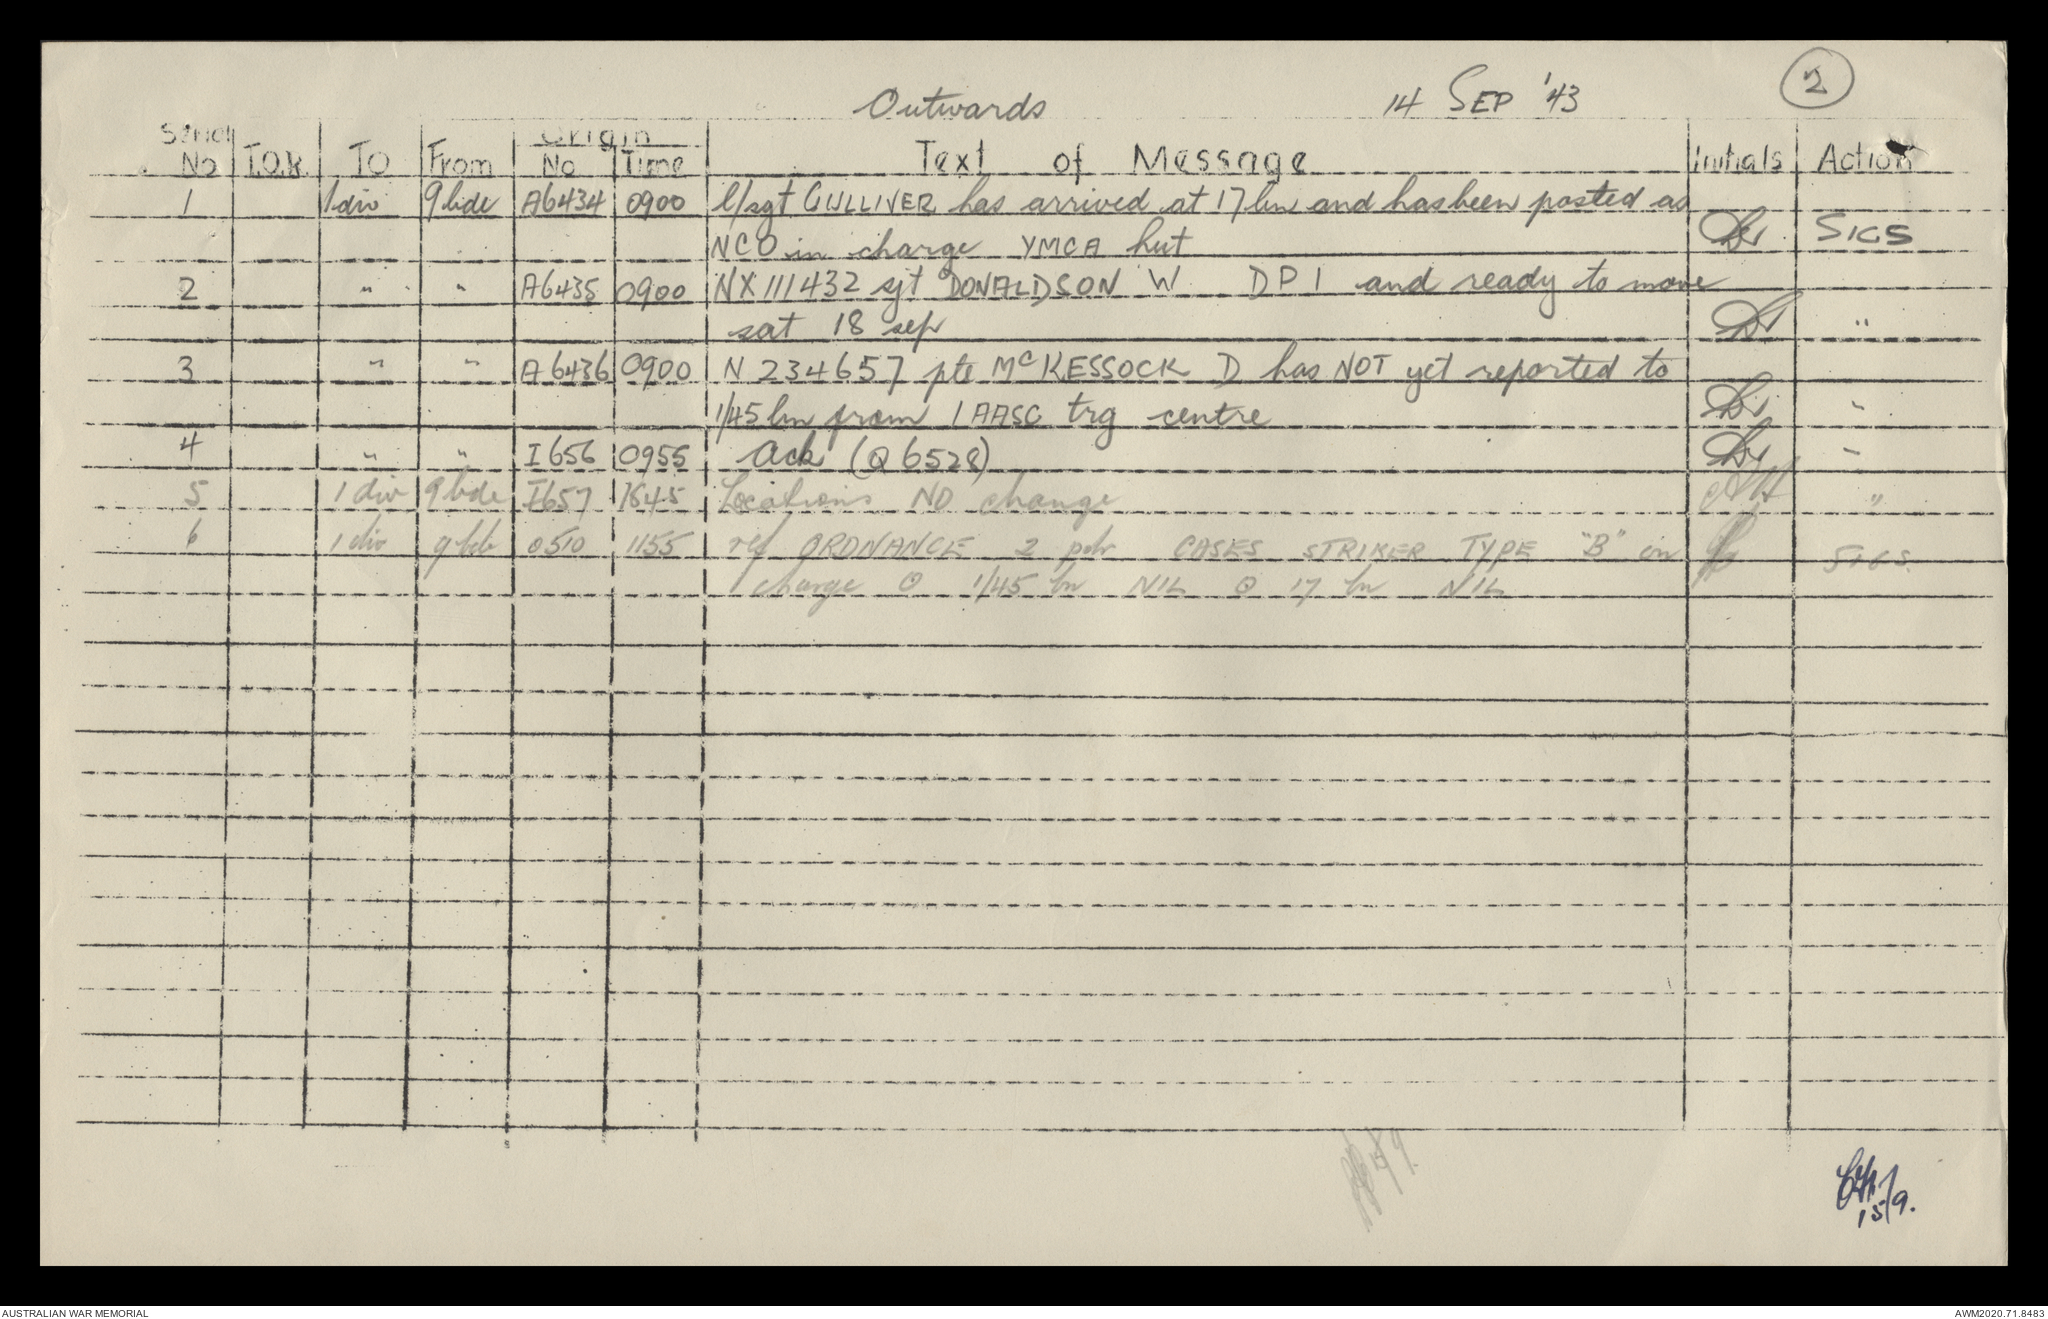 2
Outwards 14 SEP '43
Serial No T.O.R TO From Origin No Time Text of Message Initials Action
1 1 div 9 bde A6434 0900 l/sgt GULLIVER has arrived at 17 bn and has been posted as
NCO in charge YMCA hut SIGS
2 " " A6435 0900 NX111432 sjt DONALDSON W DP1 and ready to move
sat 18 sep "
3 " " A6436 0900 N234657 pte McKESSOCK D has NOT yet reported to
1/45 bn from 1 AASC trg centre "
4 " " I656 0955 Ack (Q6528) "
5 1 div 9 bde I657 1645 Locations NO change "
6 1 div 9 bde 0510 1155 ref ORDNANCE 2 pdr CASES STRIKER TYPE "B" on SIGS.
charge @ 1/45 bn NIL @ 17 bn NIL
15/9.
AUSTRALIAN WAR MEMORIAL AWM2020.71.8483